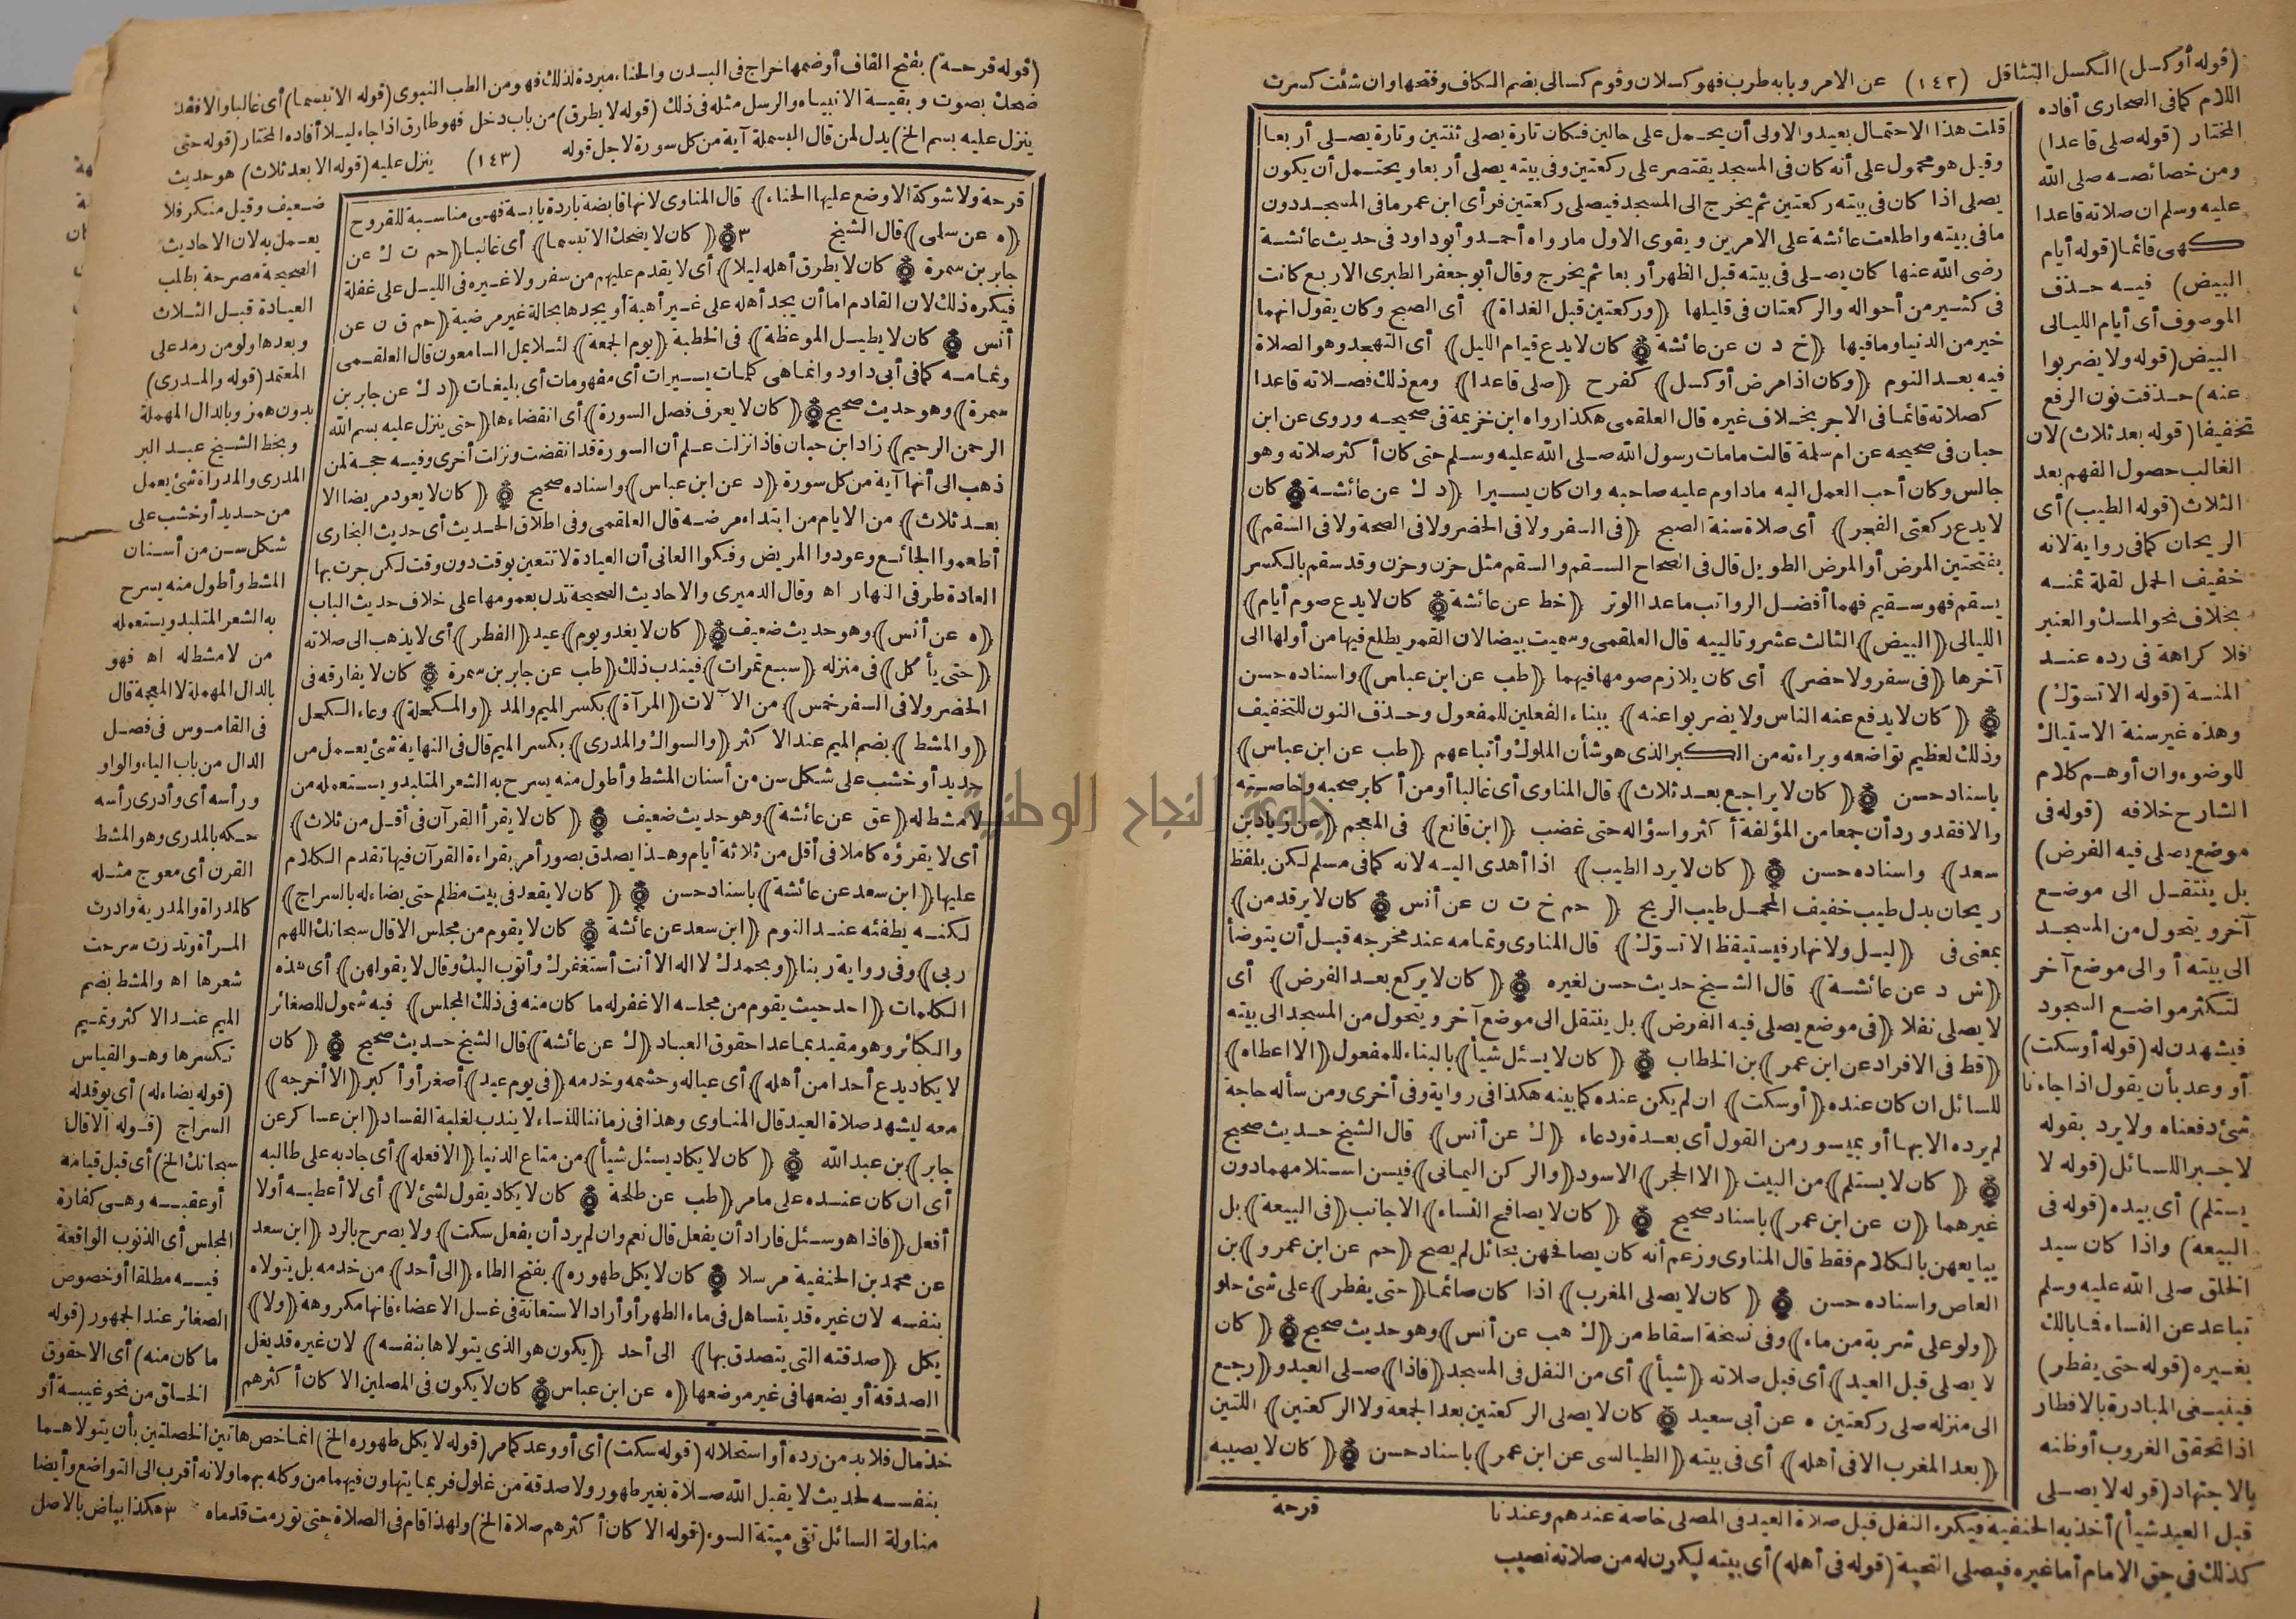 (قوله أوكسل) الكسل التثاقل (١٤٢) عن الامر وبابه طرب فهو كسلان وقوم كسالى بضم الكاف وفتحها وان شئت كسرت
اللام كما فى الصحارى أفاده
المختار (قوله صلى قاعدا)
ومن خصائصه صلى الله
عليه وسلم ان صلاته قاعدا
كهى قائما (قوله أيام
البيض) فيه حذف
الموصوف أى أيام الليالى
البيض (قوله ولا يضربوا
عنه) حذفت نون الرفع
تخفيفا (قوله بعد ثلاث) لان
الغالب حصول الفهم بعد
الثلاث (قوله الطيب) أى
الريحان كما فى رواية لانه
خفيف الحمل لقلة ثمنه
بخلاف نحو المسك والعنبر
فلا كراهة فى رده عند
المنة (قوله الا تسوّك)
وهذه غير سنة الاستياك
للوضوء وان أوهم كلام
الشارح خلافه (قوله فى
موضع يصلى فيه الفرض)
بل ينتقل الى موضع
آخر ويتحول من المسجد
الى بيته أو الى موضع آخر
لتكثر مواضع السجود
فيشهدن له (قوله أوسكت)
أو وعد بأن يقول اذا جاءنا
شئ دفعناه ولا يرد بقوله
لا جبرا للسائل (قوله لا
يستلم) أى بيده (قوله فى
البيعة) واذا كان سيد
الخلق صلى الله عليه وسلم
تباعد عن النساء فما بالك
بغيره (قوله حتى يفطر)
فينبغى المبادرة بالافطار
اذا تحقق الغروب أوظنه
بالاجتهاد (قوله لا يصلى
قبل العيد شيأ) أخذ به الحنفية فيكره النفل قبل صلاة العيد فى المصلى خاصة عندهم وعندنا
كذلك فى حق الامام أما غيره فيصلى التحية (قوله فى أهله) أى بيته ليكون له من صلاته نصيب
قلت هذا الاحتمال بعيد والاولى أن يحمل على حالين فكان تارة يصلى ثنتين وتارة يصلى أربعا
وقيل هو محمول على أنه كان فى المسجد يقتصر على ركعتين وفى بيته يصلى أربعا ويحتمل أن يكون
يصلى اذا كان فى بيته ركعتين ثم يخرج الى المسجد فيصلى ركعتين فرأى ابن عمر ما فى المسجد دون
ما فى بيته واطلعت عائشة على الامرين ويقوى الاول ما رواه أحمد وأبو داود فى حديث عائشة
رضى الله عنها كان يصلى فى بيته قبل الظهر أربعا ثم يخرج وقال أبو جعفر الطبرى الاربع كانت
فى كثير من أحواله والركعتان فى قليلها (وركعتين قبل الغداة) أى الصبح وكان يقول انهما
خير من الدنيا وما فيها (خ د ن عن عائشة) كان لا يدع قيام الليل) أى التهجد وهو الصلاة
فيه بعد النوم (وكان اذا مرض أوكسل) كفرح (صلى قاعدا) ومع ذلك فصلاته قاعدا
كصلاته قائما فى الاجر بخلاف غيره قال العلقمى هكذا رواه ابن خزيمة فى صحيحه وروى عن ابن
حبان فى صحيحه عن ام سلمة قالت ما مات رسول الله صلى الله عليه وسلم حتى كان أكثر صلاته وهو
جالس وكان أحب العمل اليه ما داوم عليه صاحبه وان كان يسيرا (د ك عن عائشة) كان
لا يدع ركعتى الفجر) أى صلاة سنة الصبح (فى السفر ولا فى الحضر ولا فى الصحة ولا فى السقم)
بفتحتين المرض أو المرض الطويل قال فى الصحاح السقم والسقم مثل حزن وحزن وقد سقم بالكسر
يسقم فهو سقيم فهما أفضل الرواتب ما عدا الوتر (خط عن عائشة) كان لا يدع صوم أيام)
الليالى (البيض) الثالث عشر وتالييه قال العلقمى وسميت بيضا لان القمر يطلع فيها من أولها الى
آخرها (فى سفر ولا حضر) أى كان يلازم صومها فيهما (طب عن ابن عباس) واسناده حسن
(كان لا يدفع عنه الناس ولا يضربوا عنه) ببناء الفعلين للمفعول وحذف النون للتخفيف
وذلك لعظيم تواضعه وبراءته من الكبر الذى هو شأن الملوك وأتباعهم (طب عن ابن عباس)
باسناد حسن (كان لا يراجع بعد ثلاث) قال المناوى أى غالبا أو من أكابر صحبه وخاصته
والا فقد ورد أن جمعا من المؤلفة أكثروا سؤاله حتى غضب (ابن قانع) فى المعجم (عن زياد بن
سعد) واسناده حسن (كان لا يرد الطيب) اذا أهدى اليه لانه كما فى مسلم لكن بلفظ
ريحان بدل طيب خفيف المحمل طيب الريح (حم خ ت ن عن أنس) كان لا يرقد من)
بمعنى فى (ليل ولا نهار فيستيقظ الا تسوّك) قال المناوى وتمامه عند مخرجه قبل أن يتوضأ
(ش د عن عائشة) قال الشيخ حديث حسن لغيره (كان لا يركع بعد الفرض) أى
لا يصلى نفلا (فى موضع يصلى فيه الفرض) بل ينتقل الى موضع آخر ويتحول من المسجد الى بيته
(قط فى الافراد عن ابن عمر) بن الخطاب (كان لا يسئل شيأ) بالبناء للمفعول (الا اعطاه)
للسائل ان كان عنده (أوسكت) ان لم يكن عنده كما بينه هكذا فى رواية وفى أخرى ومن سأله حاجة
لم يرده الا بها أو بميسور من القول أى بعدة ودعاء (ك عن أنس) قال الشيخ حديث صحيح
(كان لا يستلم) من البيت (الا الحجر) الاسود (والركن اليمانى) فيسن استلامهما دون
غيرهما (ن عن ابن عمر) باسناد صحيح (كان لا يصافح النساء) الاجانب (فى البيعة) بل
يبايعهن بالكلام فقط قال المناوى وزعم أنه كان يصافحهن بحائل لم يصح (حم عن ابن عمرو) بن
العاص واسناده حسن (كان لا يصلى المغرب) اذا كان صائما (حتى يفطر) على شئ حلو
(ولو على شربة من ماء) وفى نسخة اسقاط من (ك هب عن أنس) وهو حديث صحيح (كان
لا يصلى قبل العيد) أى قبل صلاته (شيأ) أى من النفل فى المسجد (فاذا) صلى العيد و(رجع
الى منزله صلى ركعتين ه عن أبى سعيد كان لا يصلى الركعتين بعد الجمعة ولا الركعتين) اللتين
(بعد المغرب الا فى أهله) أى فى بيته (الطيالسى عن ابن عمر) باسناد حسن (كان لا يصيبه
قرحة
(قوله قرحة) بفتح القاف أوضمها خراج فى البدن والحناء مبردة لذلك فهو من الطب النبوى (قوله الا تبسما) أى غالبا والا فقد
ضحك بصوت وبقية الانبياء والرسل مثله فى ذلك (قوله لا يطرق) من باب دخل فهو طارق اذا جاء ليلا أفاده المختار (قوله حتى
ينزل عليه بسم الخ) يدل لمن قال البسملة آية من كل سورة لاجل قوله (١٤٣) ينزل عليه (قوله الا بعد ثلاث) هو حديث
ضعيف وقيل منكر فلا
يعمل به لان الاحاديث
الصحيحة مصرحة بطلب
العيادة قبل الثلاث
وبعدها ولو من رمد على
المعتمد (قوله والمدرى)
بدون همز وبالدال المهملة
وبخط الشيخ عبد البر
المدرى والمدراة شئ يعمل
من حديد أو خشب على
شكل سن من أسنان
المشط وأطول منه يسرح
به الشعر المتلبد ويستعمله
من لا مشط له اه فهو
بالدال المهملة لا المعجمة قال
فى القاموس فى فصل
الدال من باب الياء والواو
ورأسه أى وأدرى رأسه
حكه بالمدرى وهو المشط
القرن أى معوج مثله
كالمدراة والمدرية وادرت
المرأة وتدرت سرحت
شعرها اه والمشط بضم
الميم عند الاكثر وتميم
تكسرها وهو القياس
(قوله يضاء له) أى يوقد له
السراج (قوله الا قال
سبحانك الخ) أى قبل قيامه
أو عقبه وهى كفارة
المجلس أى الذنوب الواقعة
فيه مطلقا أو خصوص
الصغائر عند الجمهور (قوله
ما كان منه) أى الا حقوق
الخلق من نحو غيبة أو
خذ مال فلابد من رده أو استحلاله (قوله سكت) أى أو وعد كما مر (قوله لا يكل طهوره الخ) انما خص هاتين الخصلتين بأن يتولاهما
بنفسه لحديث لا يقبل الله صلاة بغير طهور ولا صدقة من غلول فربما يتهاون فيهما من وكله بهما ولانه أقرب الى التواضع وأيضا
مناولة السائل تقى ميتة السوء (قوله الا كان أكثرهم صلاة الخ) ولهذا قام فى الصلاة حتى تورمت قدماه ٣ هكذا بياض بالاصل
قرحة ولا شوكة الا وضع عليها الحناء) قال المناوى لانها قابضة باردة يابسة فهى مناسبة للقروح
(ه عن سلمى) قال الشيخ ٣ (كان لا يضحك الا تبسما) أى غالبا (حم ت ك عن
جابر بن سمرة كان لا يطرق أهله ليلا) أى لا يقدم عليهم من سفر ولا غيره فى الليل على غفلة
فيكره ذلك لان القادم اما أن يجد أهله على غير أهبة أو يجدها بحالة غير مرضية (حم ق ن عن
أنس كان لا يطيل الموعظة) فى الخطبة (يوم الجمعة) لئلا يمل السامعون قال العلقمى
وتمامه كما فى أبى داود وانما هى كلمات يسيرات أى مفهومات أى بليغات (د ك عن جابر بن
سمرة) وهو حديث صحيح (كان لا يعرف فصل السورة) أى انقضاءها (حتى ينزل عليه بسم الله
الرحمن الرحيم) زاد ابن حبان فاذا نزلت علم أن السورة قد انقضت ونزلت أخرى وفيه حجة لمن
ذهب الى أنها آية من كل سورة (د عن ابن عباس) واسناده صحيح (كان لا يعود مريضا الا
بعد ثلاث) من الايام من ابتداء مرضه قال العلقمى وفى اطلاق الحديث أى حديث البخارى
أطعموا الجائع وعودوا المريض وفكوا العانى أن العيادة لا تتعين بوقت دون وقت لكن جرت بها
العادة طرفى النهار اه وقال الدميرى والاحاديث الصحيحة تدل بعمومها على خلاف حديث الباب
(ه عن أنس) وهو حديث ضعيف (كان لا يغدو يوم) عيد (الفطر) أى لا يذهب الى صلاته
(حتى يأكل) فى منزله (سبع تمرات) فيندب ذلك (طب عن جابر بن سمرة كان لا يفارقه فى
الحضر ولا فى السفر خمس) من الآلات (المرآة) بكسر الميم والمد (والمكحلة) وعاء الكحل
(والمشط) بضم الميم عند الاكثر (والسواك والمدرى) بكسر الميم قال فى النهاية شئ يعمل من
حديد أو خشب على شكل سن من أسنان المشط وأطول منه يسرح به الشعر المتلبد ويستعمله من
لا مشط له (عق عن عائشة) وهو حديث ضعيف (كان لا يقرأ القرآن فى أقل من ثلاث)
أى لا يقرؤه كاملا فى أقل من ثلاثة أيام وهذا يصدق بصور أمر بقراءة القرآن فيها تقدم الكلام
عليها (ابن سعد عن عائشة) باسناد حسن (كان لا يقعد فى بيت مظلم حتى يضاء له بالسراج)
لكنه يطفئه عند النوم (ابن سعد عن عائشة كان لا يقوم من مجلس الا قال سبحانك اللهم
ربى) وفى رواية ربنا (وبحمدك لا اله الا أنت أستغفرك وأتوب اليك وقال لا يقولهن) أى هذه
الكلمات (احد حيث يقوم من مجلسه الا غفر له ما كان منه فى ذلك المجلس) فيه شمول للصغائر
والكبائر وهو مقيد بما عدا حقوق العباد (ك عن عائشة) قال الشيخ حديث صحيح (كان
لا يكاد يدع أحدا من أهله) أى عياله وحشمه وخدمه (فى يوم عيد) أصغر أو أكبر (الا أخرجه)
معه ليشهد صلاة العيد قال المناوى وهذا فى زماننا للنساء لا يندب لغلبة الفساد (ابن عساكر عن
جابر) بن عبد الله (كان لا يكاد يسئل شيأ) من متاع الدنيا (الا فعله) أى جاد به على طالبه
أى ان كان عنده على ما مر (طب عن طلحة كان لا يكاد يقول لشئ لا) أى لا أعطيه أو لا
أفعل (فاذا هو سئل فاراد أن يفعل قال نعم وان لم يرد أن يفعل سكت) ولا يصرح بالرد (ابن سعد
عن محمد بن الحنفية مرسلا كان لا يكل طهوره) بفتح الطاء (الى أحد) من خدمه بل يتولاه
بنفسه لان غيره قد يتساهل فى ماء الطهر أو أراد الاستعانة فى غسل الاعضاء فانها مكروهة (ولا)
يكل (صدقته التى يتصدق بها) الى أحد (يكون هو الذى يتولاها بنفسه) لان غيره قد يغل
الصدقة أو يضعها فى غير موضعها (ه عن ابن عباس كان لا يكون فى المصلين الا كان أكثرهم
جامعة النجاح الوطنية